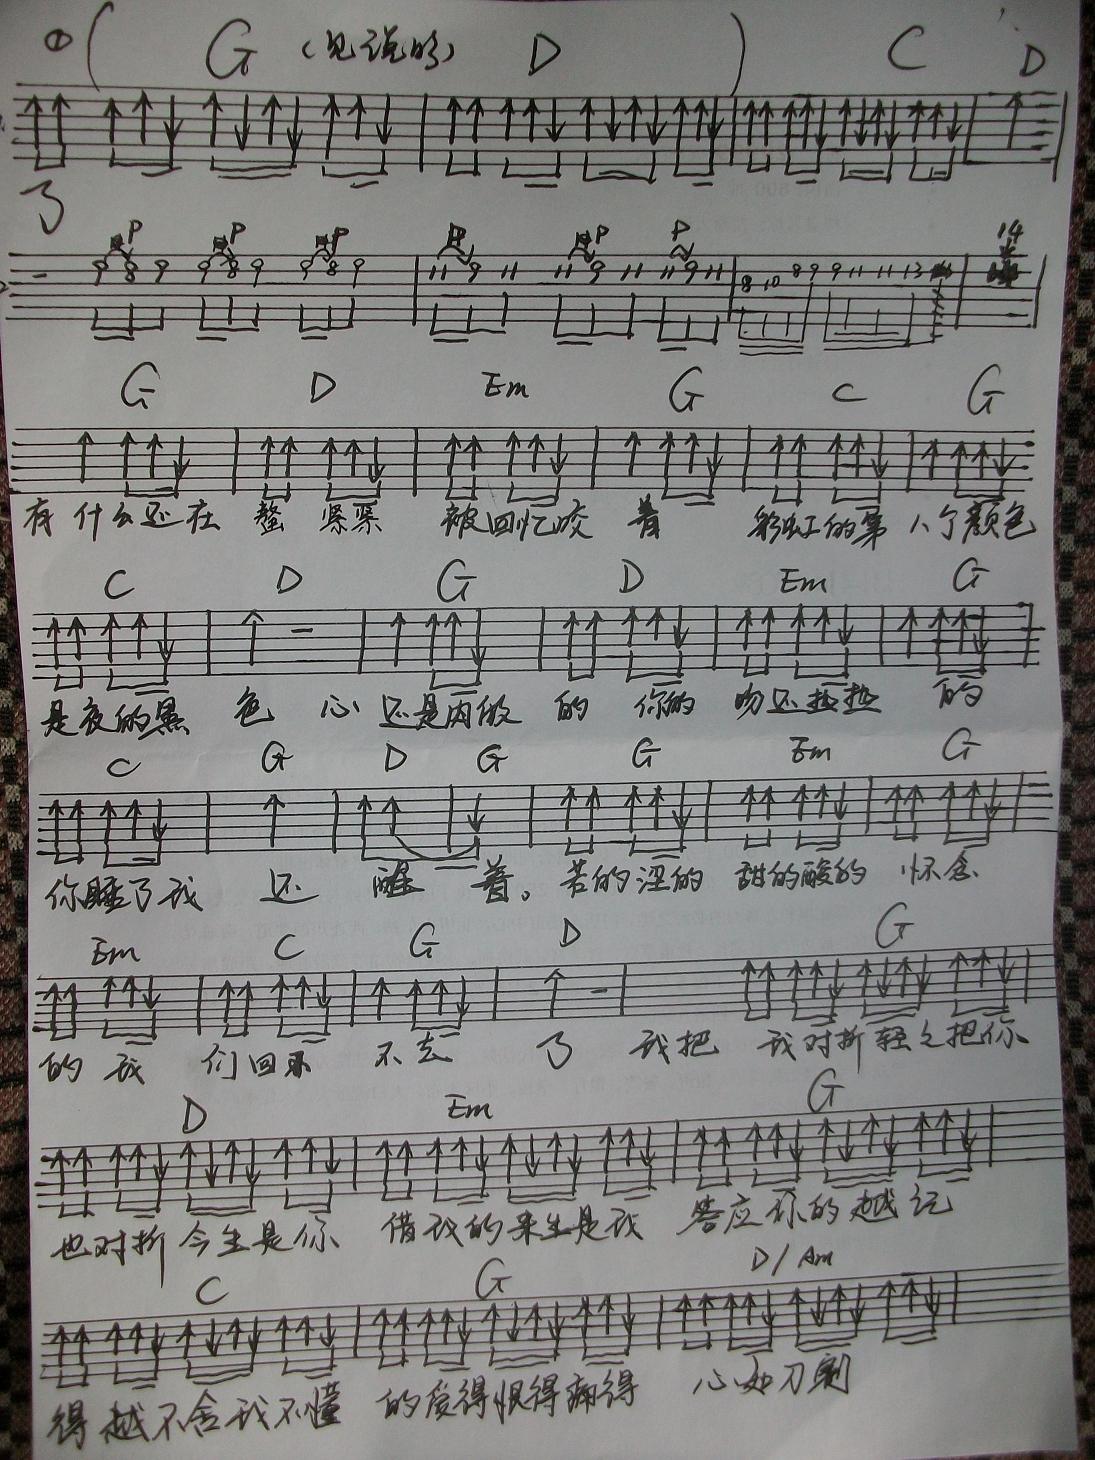 ① ( G (见说明) D ) C D
了
P P P P P P
14
9 8 9 9 8 9 9 8 9 11 9 11 11 9 11 11 9 11 8 10 8 9 9 11 11 13
G D Em G C G
有 什么还在 螫 紧紧 被回忆咬 着 彩虹的第 八个颜色
C D G D Em G
是夜的黑 色 心 还是肉做 的 你的 吻还热热 的
C G D G G Em G
你睡了我 还 醒 着。 苦的涩的 甜的酸的 怀念
Em C G D G
的 我 们回来 不去 了 我把 我对折轻之把你
D Em G
也对折 今生是你 借我的来生是我 答应你的越记
C G D/Am
得越不舍我不懂 的爱得恨得痛得 心如刀割